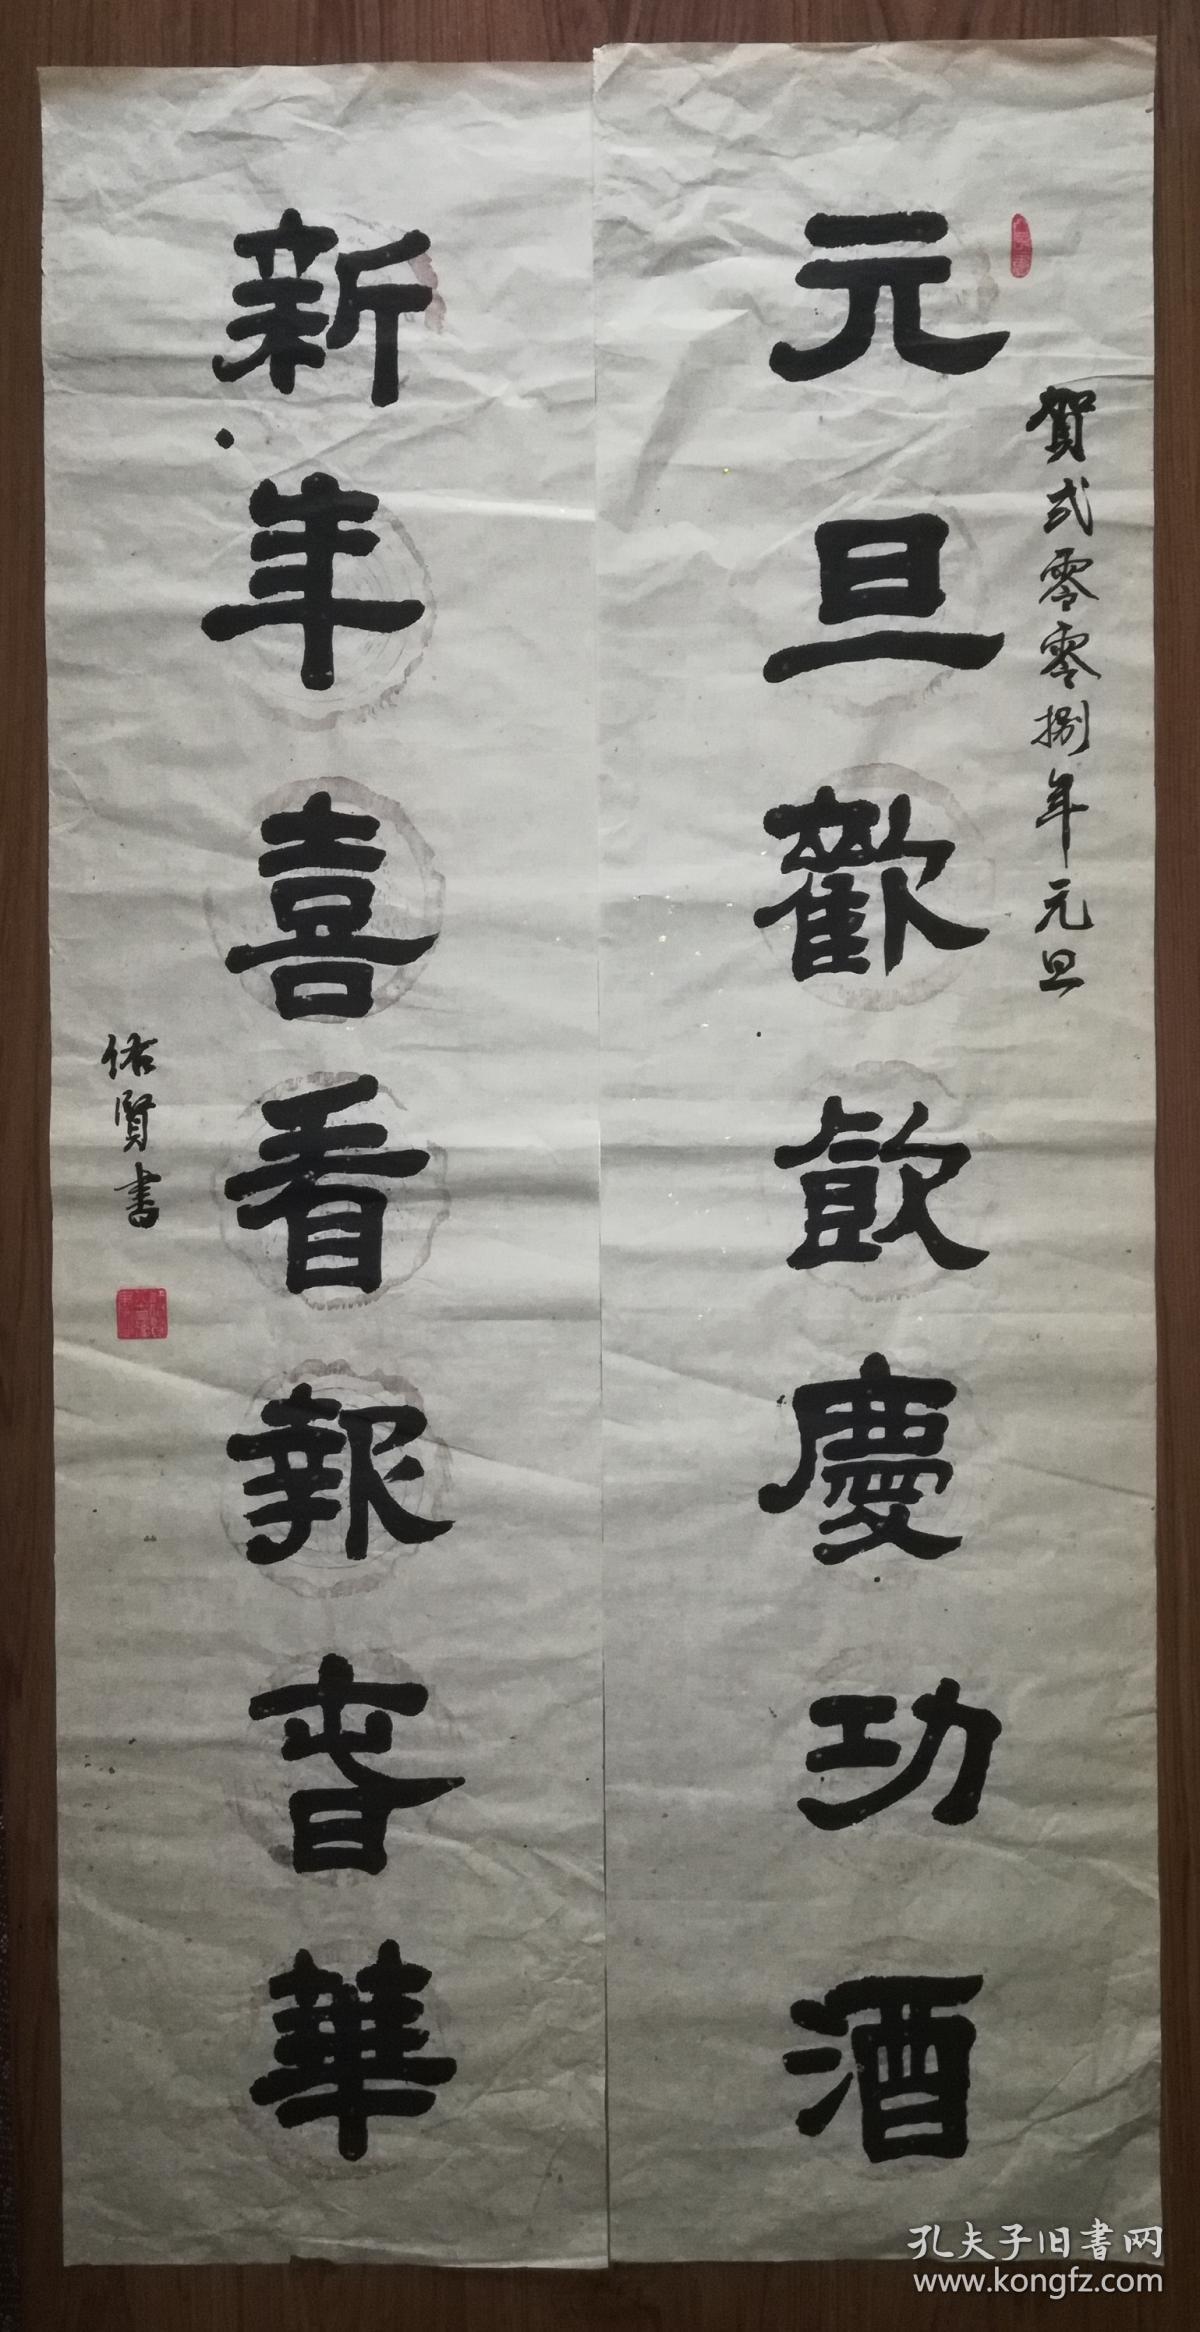 元旦歡飲慶功酒
賀弍零零捌年元旦
新年喜看報春華
佑賢書
孔夫子旧書网
www.kongfz.com